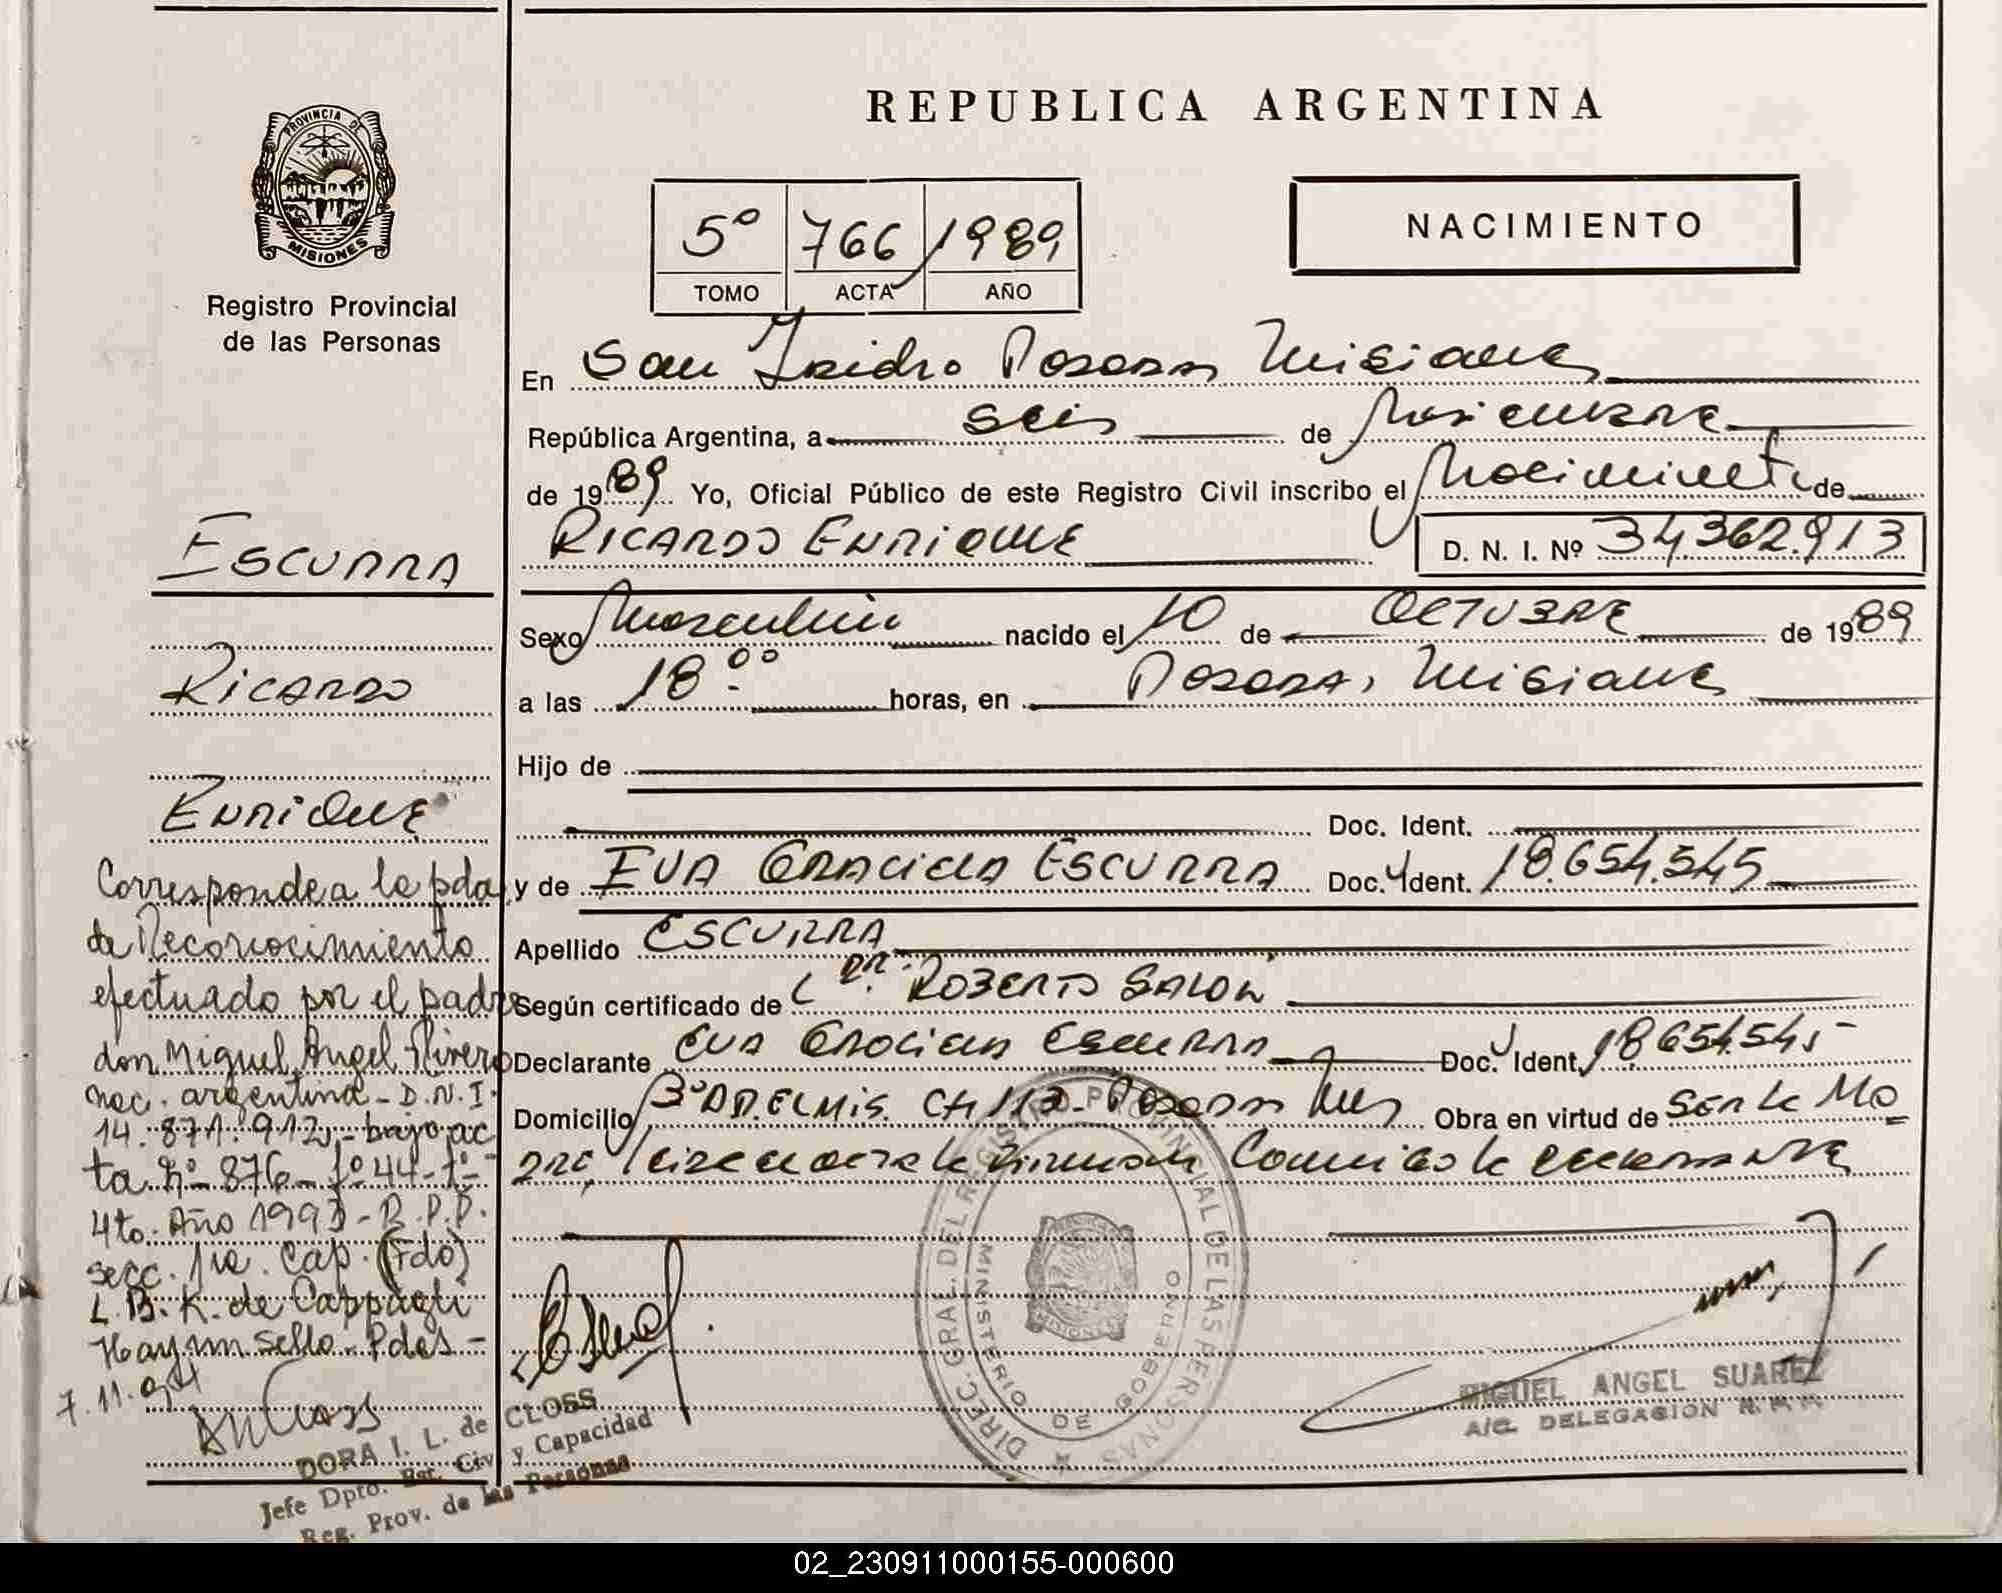 PROVINCIA DE
MISIONES
Registro Provincial
de las Personas
REPUBLICA ARGENTINA
5º 766 1989
TOMO ACTA AÑO
NACIMIENTO
En San Isidro Posadas Misiones
República Argentina, a seis de Noviembre
de 1989 Yo, Oficial Público de este Registro Civil inscribo el Nacimiento de
RICARDO ENRIQUE D. N. I. Nº 34.362.913
Sexo Masculino nacido el 10 de OCTUBRE de 1989
a las 18.00 horas, en Posadas, Misiones
Hijo de
Doc. Ident.
y de EVA GRACIELA ESCURRA Doc. Ident. 18.654.545
Apellido ESCURRA
Según certificado de Dr. ROBERTO
Declarante EVA GRACIELA ESCURRA Doc. Ident. 18.654.545
Domicilio Bº CH 113 - Posadas Mnes Obra en virtud de Ser la Ma
dre,
ESCURRA
RICARDO
ENRIQUE
Corresponde a la pda
de Reconocimiento
efectuado por el padre
don Miguel Angel Rivero
nac. argentina - D.N.I.
14.871.912 - bajo ac
ta nº 876 - fº 44 - tº
4to. Año 1993 - R.P.P.
secc. 1ra. Cap. (Fdo)
L.B.K. de Cappagli
Hay un sello - Pdas -
7.11.94
DORA I. L. de CLOSS
Jefe Dpto. Est. Civ. y Capacidad
Reg. Prov. de las Personas
DIREC. GRAL. DEL REGISTRO PROVINCIAL DE LAS PERSONAS
MINISTERIO DE GOBIERNO
MISIONES
MIGUEL ANGEL SUAREZ
A/C. DELEGACION
02_230911000155-000600